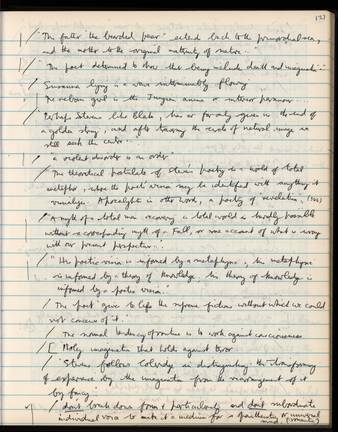 121
The father "the bearded peer" echoed back to the primordial sea,
and the mother to the original maternity of nature..
The poet determined to show that being includes death and imagination
Susanna lying in a wave interminably flowing
The auburn girl is the Jungian anima or interior paramour ....
Perhaps Stevens like Blake, has so far only given us the end of
a golden string, and after the circle of natural images we
still seek the centre.
"a violent disorder is an order"
The theoretical postulate of Stevens' poetry is a world of total
metaphor, where the poet's vision may be identified with anything it
visualizes. Apocalyptic in other words, a poetry of revelation.
A myth of a total man recovering a total world is hardly possible
without a corresponding myth of a Fall, or some account of what is wrong
with our present perspective.
"His poetic vision is informed by a metaphysic, his metaphysic
is informed by a theory of knowledge, his theory of knowledge is
informed by a poetic vision."
The poet "gives to life the supreme fictions without which we could
not conceive of it."
The normal tendency of routine is to work against consciousness
Holy imagination that holds against terror
"Stevens follows Coleridge in distinguishing the transforming
of experience by the imagination from the rearrangement of it
by fancy
don't break down form & particularity and don't subordinate
individual voice to make it a medium for a or universal
mind (romantic)